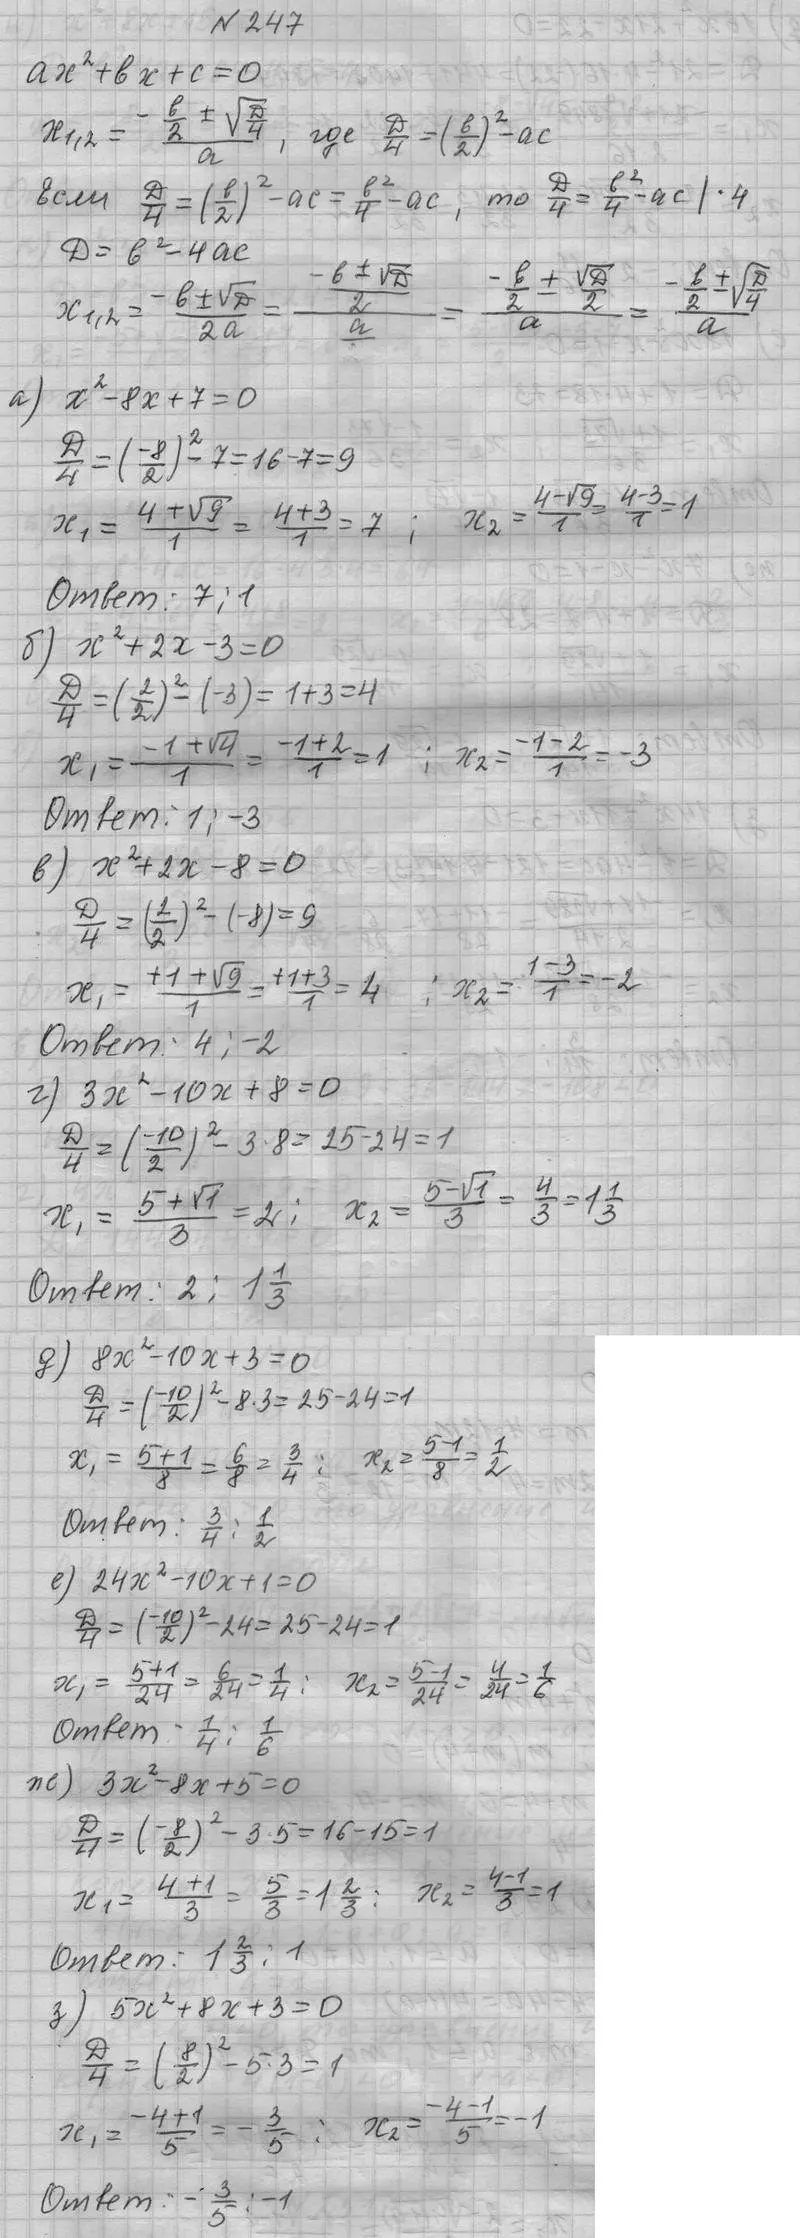 № 247
ax² + bx + c = 0
x₁,₂ = (-b/2 ± √(D/4))/a , где D/4 = (b/2)² - ac
Если D/4 = (b/2)² - ac = b²/4 - ac , то D/4 = b²/4 - ac | · 4
D = b² - 4ac
x₁,₂ = (-b ± √D)/2a = ((-b ± √D)/2)/a = (-b/2 ± √D/2)/a = (-b/2 ± √(D/4))/a
а) x² - 8x + 7 = 0
D/4 = (-8/2)² - 7 = 16 - 7 = 9
x₁ = (4 + √9)/1 = (4 + 3)/1 = 7 ; x₂ = (4 - √9)/1 = (4 - 3)/1 = 1
Ответ: 7 ; 1
б) x² + 2x - 3 = 0
D/4 = (2/2)² - (-3) = 1 + 3 = 4
x₁ = (-1 + √4)/1 = (-1 + 2)/1 = 1 ; x₂ = (-1 - 2)/1 = -3
Ответ: 1 ; -3
в) x² + 2x - 8 = 0
D/4 = (2/2)² - (-8) = 9
x₁ = (+1 + √9)/1 = (+1 + 3)/1 = 4 ; x₂ = (1 - 3)/1 = -2
Ответ: 4 ; -2
г) 3x² - 10x + 8 = 0
D/4 = (-10/2)² - 3·8 = 25 - 24 = 1
x₁ = (5 + √1)/3 = 2 ; x₂ = (5 - √1)/3 = 4/3 = 1 1/3
Ответ: 2 ; 1 1/3
д) 8x² - 10x + 3 = 0
D/4 = (-10/2)² - 8·3 = 25 - 24 = 1
x₁ = (5 + 1)/8 = 6/8 = 3/4 ; x₂ = (5 - 1)/8 = 1/2
Ответ: 3/4 ; 1/2
е) 24x² - 10x + 1 = 0
D/4 = (-10/2)² - 24 = 25 - 24 = 1
x₁ = (5 + 1)/24 = 6/24 = 1/4 ; x₂ = (5 - 1)/24 = 4/24 = 1/6
Ответ: 1/4 ; 1/6
ж) 3x² - 8x + 5 = 0
D/4 = (-8/2)² - 3·5 = 16 - 15 = 1
x₁ = (4 + 1)/3 = 5/3 = 1 2/3 ; x₂ = (4 - 1)/3 = 1
Ответ: 1 2/3 ; 1
з) 5x² + 8x + 3 = 0
D/4 = (8/2)² - 5·3 = 1
x₁ = (-4 + 1)/5 = -3/5 ; x₂ = (-4 - 1)/5 = -1
Ответ: -3/5 ; -1